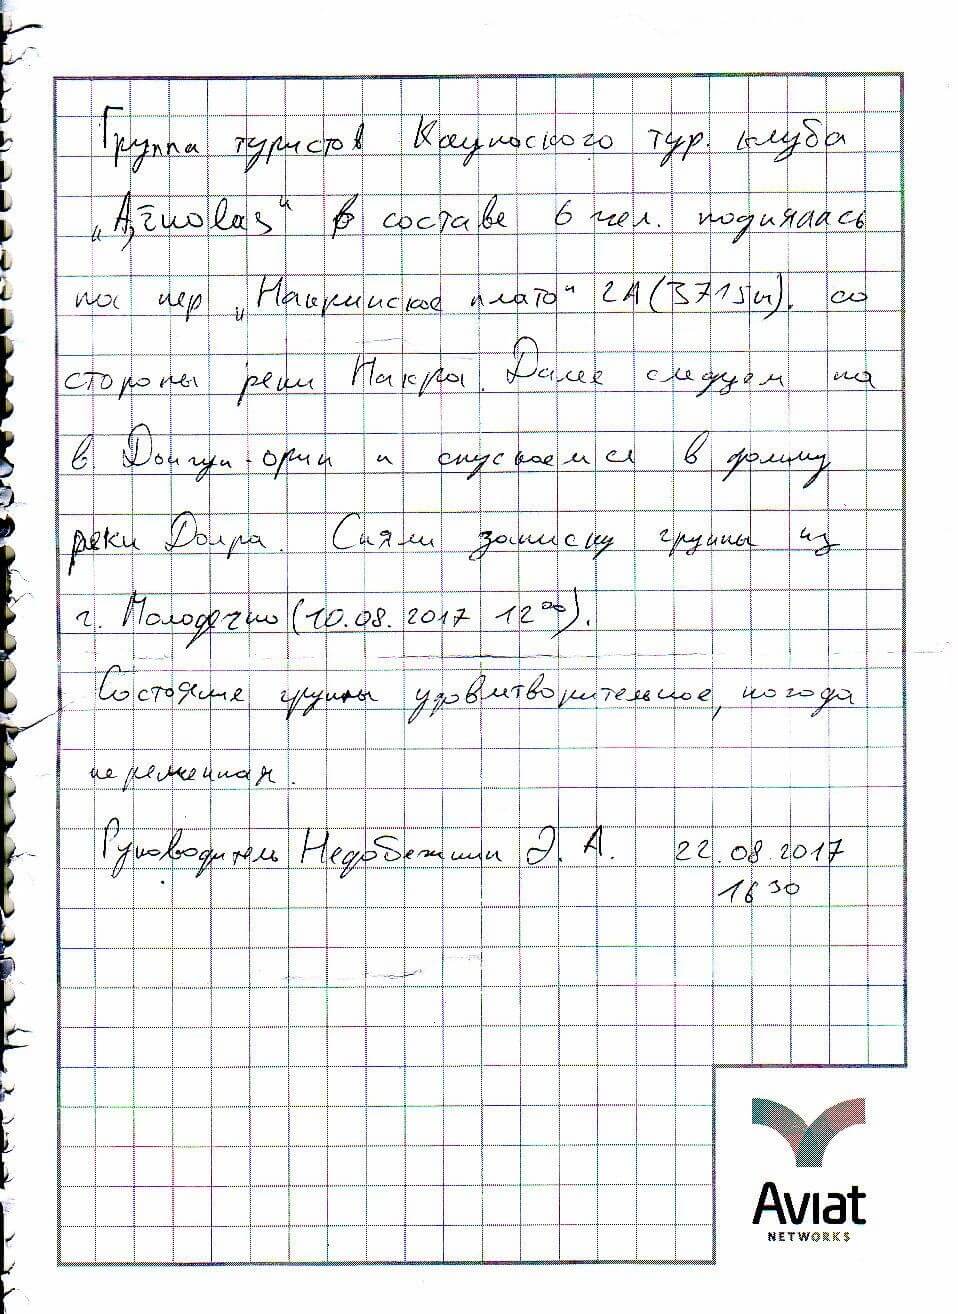 Группа туристов Каунасского тур. клуба
„Ąžuolas“ в составе 6 чел. поднялась
на пер „Накринское плато“ 2А (3715м). со
стороны реки Накра. Далее следуем на
в Донгуз-орун и спускаемся в долину
реки Долра. Сняли записку группы из
г. Молодечно (10.08.2017 12⁰⁰).
Состояние группы удовлтворительное, погода
переменная.
Руководитель Недобежкин Э. А. 22.08.2017
16 30
Aviat
NETWORKS